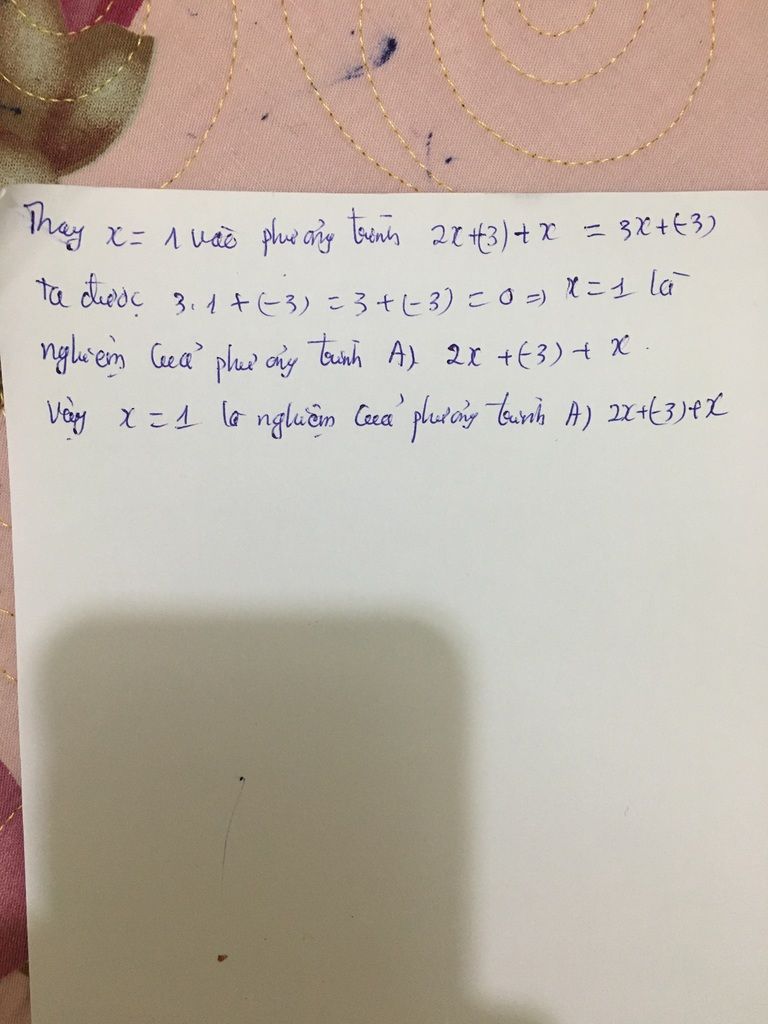 Thay x = 1 vào phương trình 2x+(-3)+x = 3x+(-3)
ta được 3.1+(-3) = 3+(-3) = 0 => x=1 là
nghiệm của phương trình A) 2x+(-3)+x.
Vậy x = 1 là nghiệm của phương trình A) 2x+(-3)+x